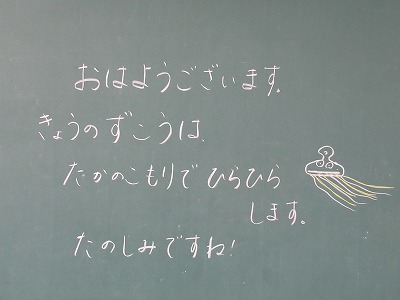 おはようございます。
きょうのずこうは、
たかのこもりでひらひら
します。
たのしみですね!